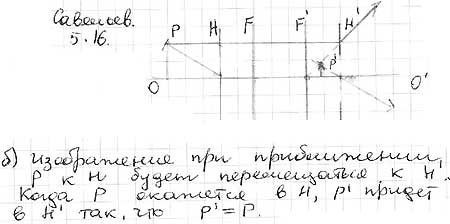 Савельев.
5.16.
P H F F' H'
P'
O O'
б) изображение при приближении
P к H будет перемещаться к H'.
Когда P окажется в H, P' придет
в H' так, что P' = P.